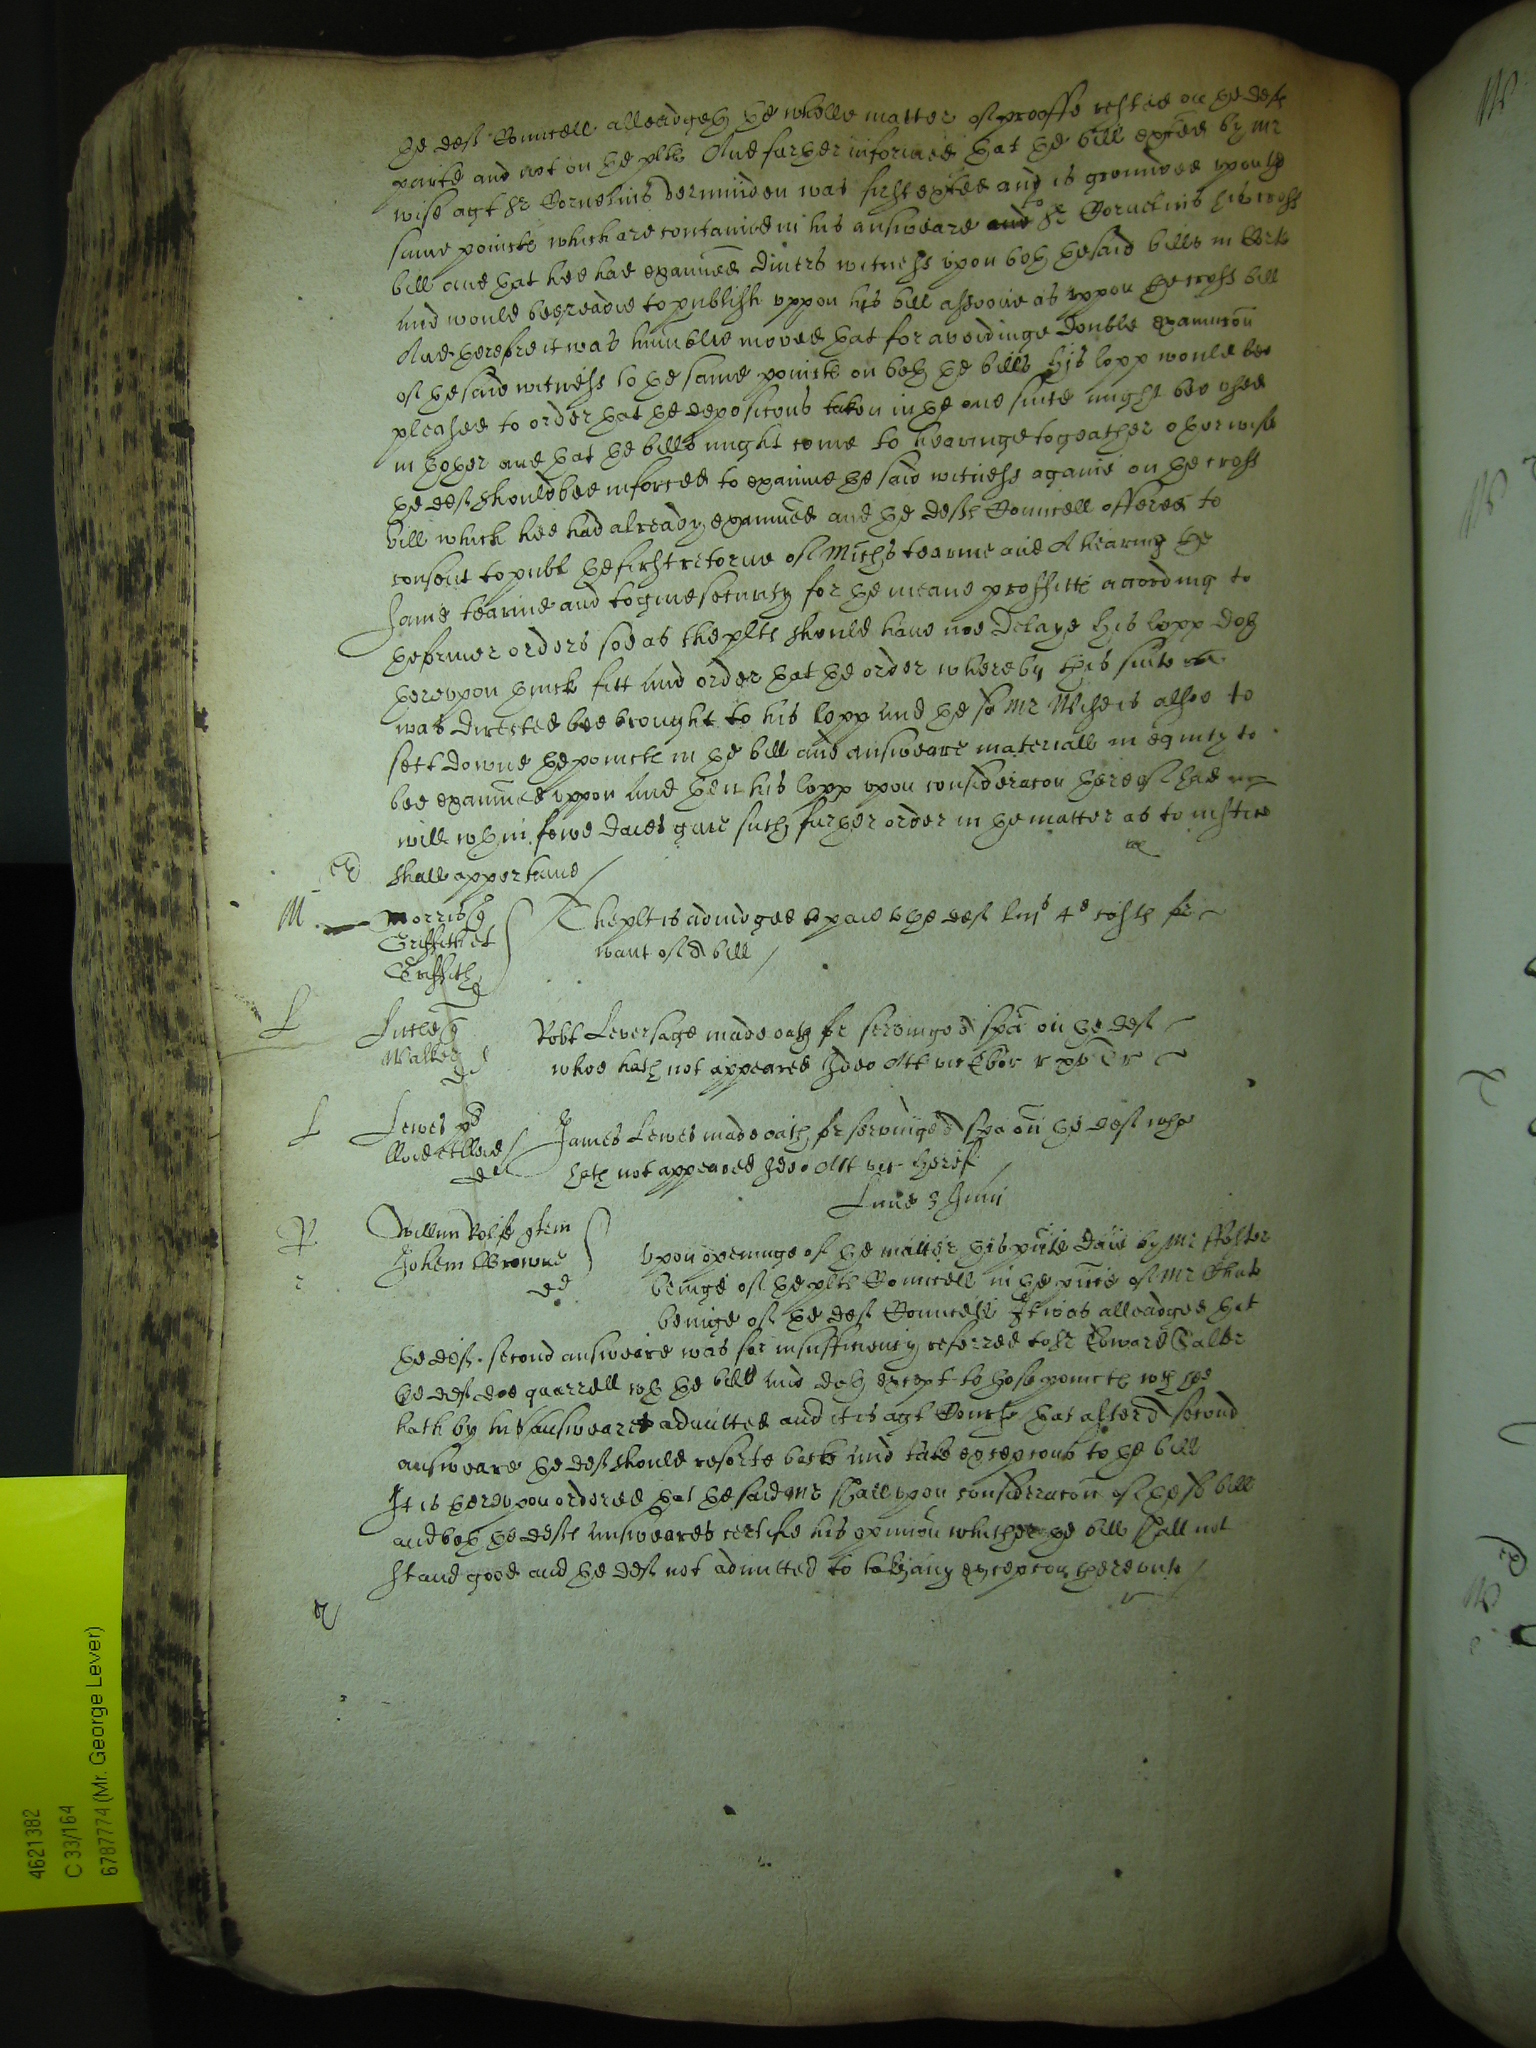 the deft Councell alleadgeth the wholle matter of prooffe resteth on the deft
parte and not on the plts And further informed that the bill exhted by Mr
wise agt Sr Cornelius Vermuiden was first exhted and is grounded upon the
same pointe which are contained in his answeare to Sr Cornelius his cross
bill and that hee had examined divers witness upon both the said bills in Corte
and would bee readie to publish uppon his bill assoone as uppon the cross bill
And therefore it was humblie moved that for avoidinge double examinacon
of the said witness to the same pointe on both the bills his Lopp would bee
pleased to order that the deposicons taken in the one suite might bee used
in thother and that the bills might come to hearinge togeather otherwise
the deft should bee inforced to examine the said witness againe on the cross
bill which hee had already examined and the defte Councell offered to
consent to publ the first retorne of Michs tearme and A hearing the
same tearme and to give security for the meane proffitte according to
the former orders soe as the plte should have noe delaye his Lopp doth
thereupon thinck fitt and order that the order whereby this suite
was directed bee brought to his Lopp and the sd Mr Wise is alsoe to
sett downe the pointe in the bill and answeare materiall in equity to
bee examined uppon and then his Lopp upon consideracon thereof had
will wthin fewe daies give such further order in the matter as to justice
shall appertaine
M Morris q
Griffith et
Griffith d
The plt is adiudged to paie to the deft 4d coste for
want of A bill
L
Walker d
Robt Leversage made oath for servinge A spa on the deft
whoe hath not appeared Ideo Att vic Ebor r
L Lewes q
lloid et lloid
def
James Lewes made oath for servinge A spa on the deft whoe
hath not appeared Ideo Att vic heref
Lune 3 Junii
R Willm Rolfe q
Johem Browne
def
Upon openinge of the matter this pnte daie by Mr ffoster
beinge of the plts Councell in the pnce of Mr
beinge of the deft Councell It was alleadged that
the deft second answeare was for insufficiency referred to Sr Edward Salter
the deft doe quarrell wth the bill and doth except to those pointe wch hee
hath by his answeares admitted and it is agt Course that after A second
answeare the deft should resorte back and take excepcons to the bill
It is thereupon ordered that the said Mr shall upon consideracon of the sd bill
and both the defte answeares certifie his opinion whether the bill shall not
stand good and the deft not admitted to take any excepcon thereunto
4621382
C 33/164
6787774 (Mr. George Lever)